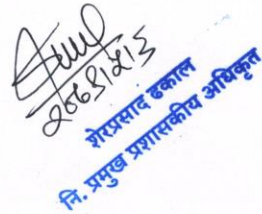 २०८१५१३
शेरप्रसाद ढकाल
नि. प्रमुख प्रशासकीय अधिकृत